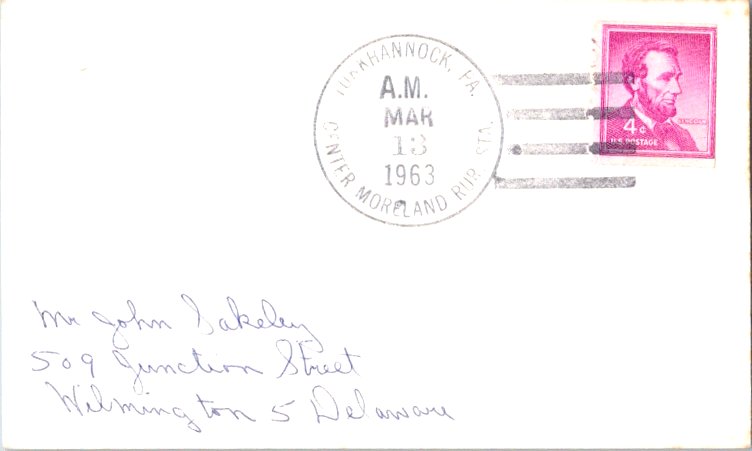 TUNKHANNOCK, PA.
A.M.
MAR
13
1963
CENTER MORELAND RUR. STA.
LINCOLN
4¢
U.S. POSTAGE
Mr John Sakeley
509 Junction Street
Wilmington 5 Delaware